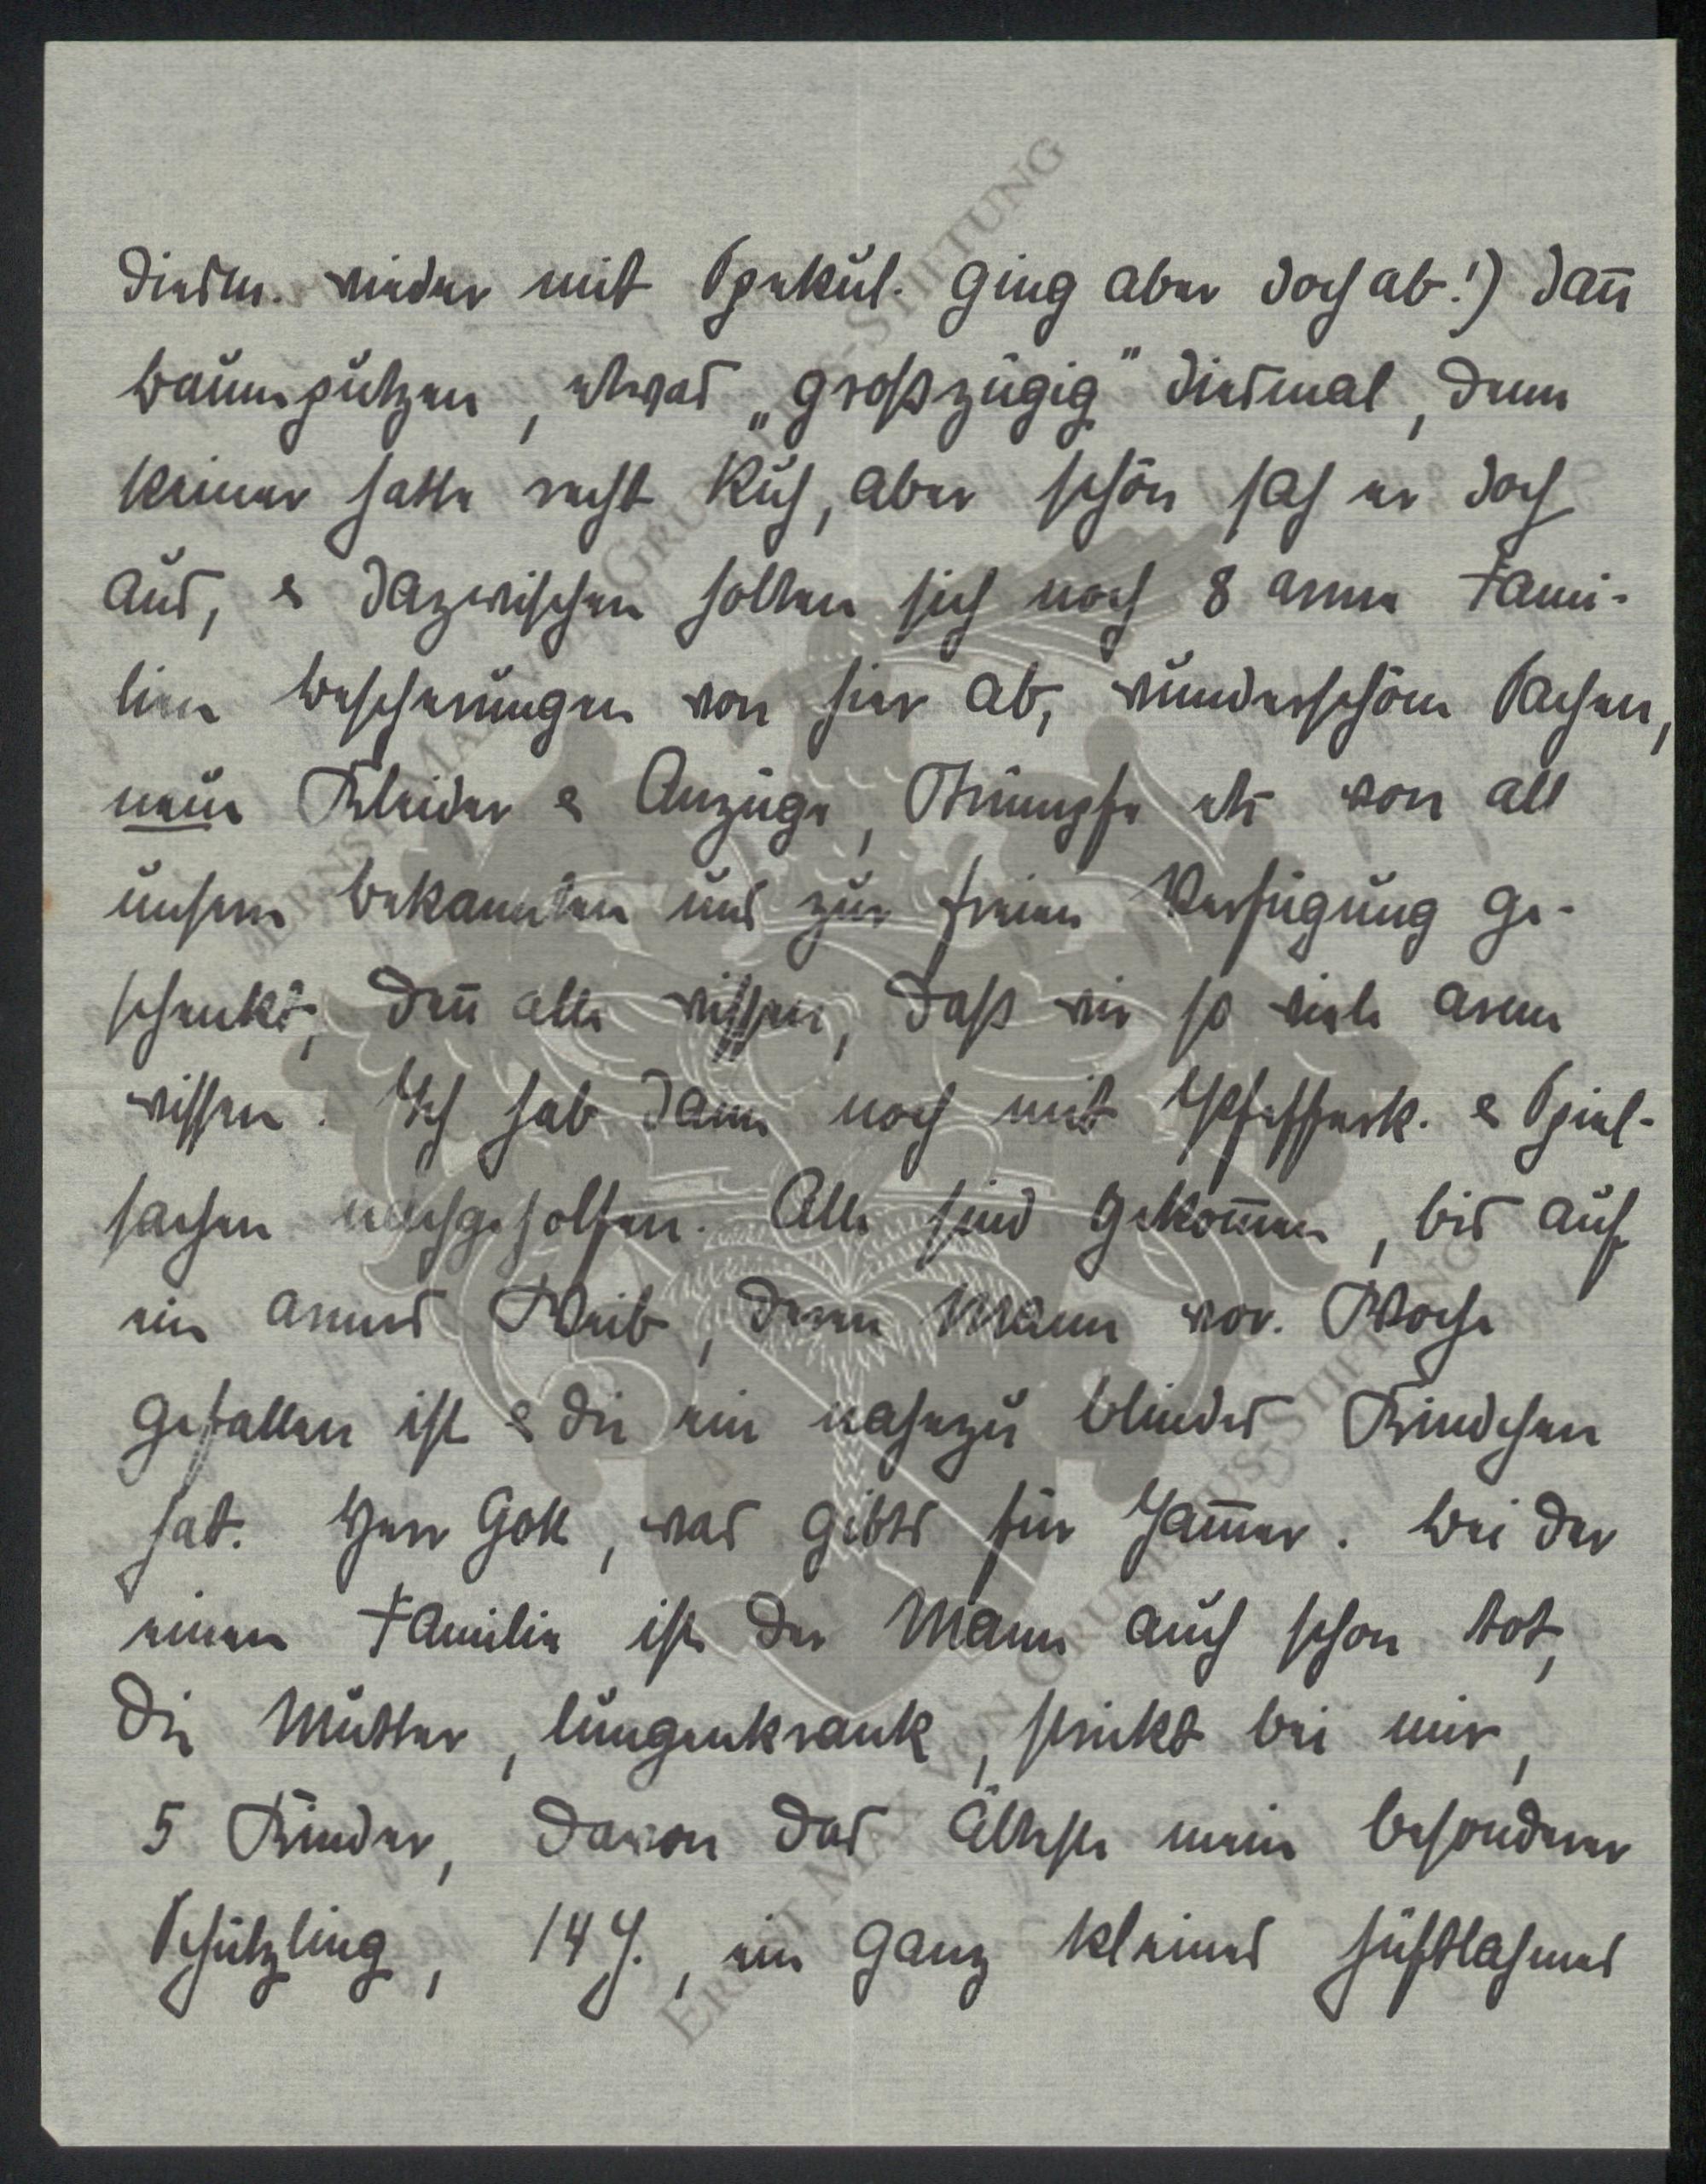 diesm. wieder mit Spekul. ging aber doch ab!) dan̄
baumputzen, etwas „großzügig" diesmal, denn
keiner hatte recht Ruh, aber schön sah er doch
aus, & dazwischen holten sich noch 8 arme Fami-
lien bescherungen von hier ab, wunderschöne Sachen,
neue Kleider & Anzüge, Strümpfe etc von all
unsern bekannten uns zur freien Verfügung ge-
schenkt, den̄ alle wissen, daß wir so viele arme
wissen. Ich hab dann noch mit Pfefferk. & Spiel-
sachen nachgeholfen. Alle sind gekom̄en, bis auf
ein armes Weib, deren Mann vor. Woche
gefallen ist & die ein nahezu blindes Kindchen
hat. Herr Gott, was gibts für Jam̄er. bei der
einen Familie ist der Mann auch schon tot,
die Mutter, lungenkrank, strickt bei mir,
5 Kinder, davon das Älteste mein besonderer
Schützling, 14 J., ein ganz kleines hüftlahmes
ERNST MAX VON GRUNELIUS-STIFTUNG
ERNST MAX VON GRUNELIUS-STIFTUNG